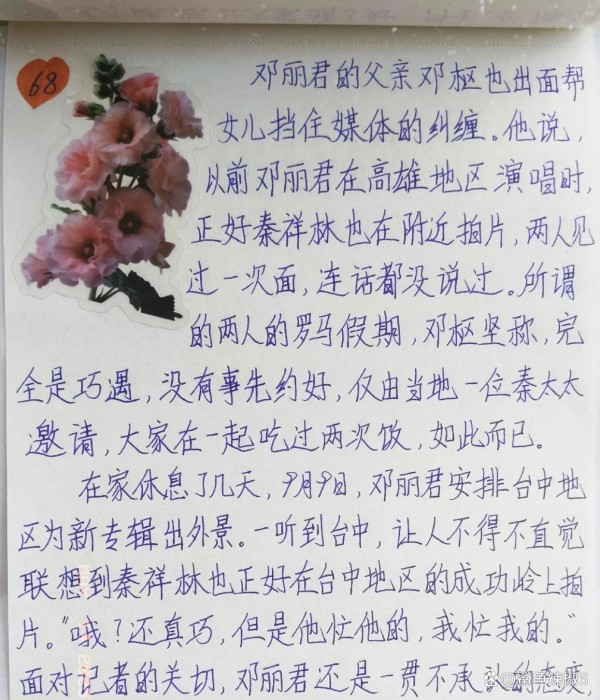 68
邓丽君的父亲邓枢也出面帮
女儿挡住媒体的纠缠。他说，
以前邓丽君在高雄地区演唱时，
正好秦祥林也在附近拍片，两人见
过一次面，连话都没说过。所谓
的两人的罗马假期，邓枢坚称，完
全是巧遇，没有事先约好，仅由当地一位秦太太
邀请，大家在一起吃过两次饭，如此而已。
在家休息了几天，9月9日，邓丽君安排台中地
区为新专辑出外景。一听到台中，让人不得不直觉
联想到秦祥林也正好在台中地区的成功岭上拍
片。“哦？还真巧，但是他忙他的，我忙我的。”
面对记者的关切，邓丽君还是一贯不承认的态度，